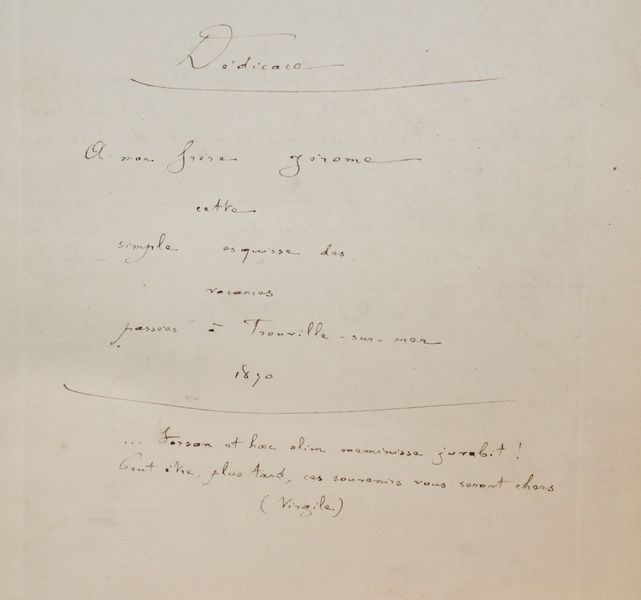 Dédicace
A mon frère Jérome
cette
simple esquisse des
vacances
passées à Trouville-sur-mer
1890
... Forsan et hæc olim meminisse juvabit !
Peut être plus tard, ces souvenirs vous seront chers
(Virgile)